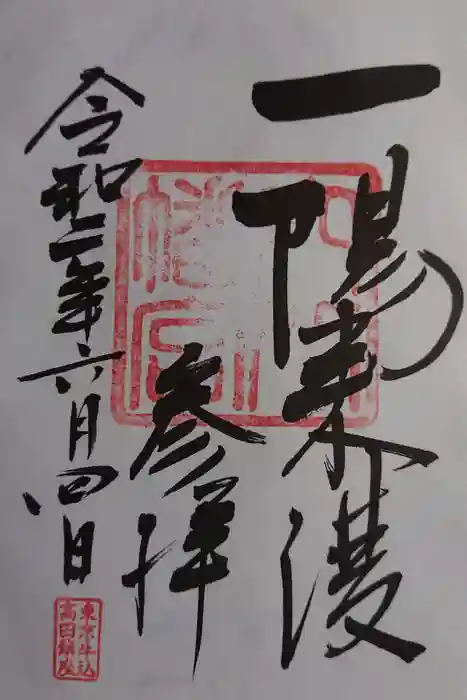 一陽来復
参拝
令和二年六月四日
穴八
幡宮
東京牛込
高田鎮座